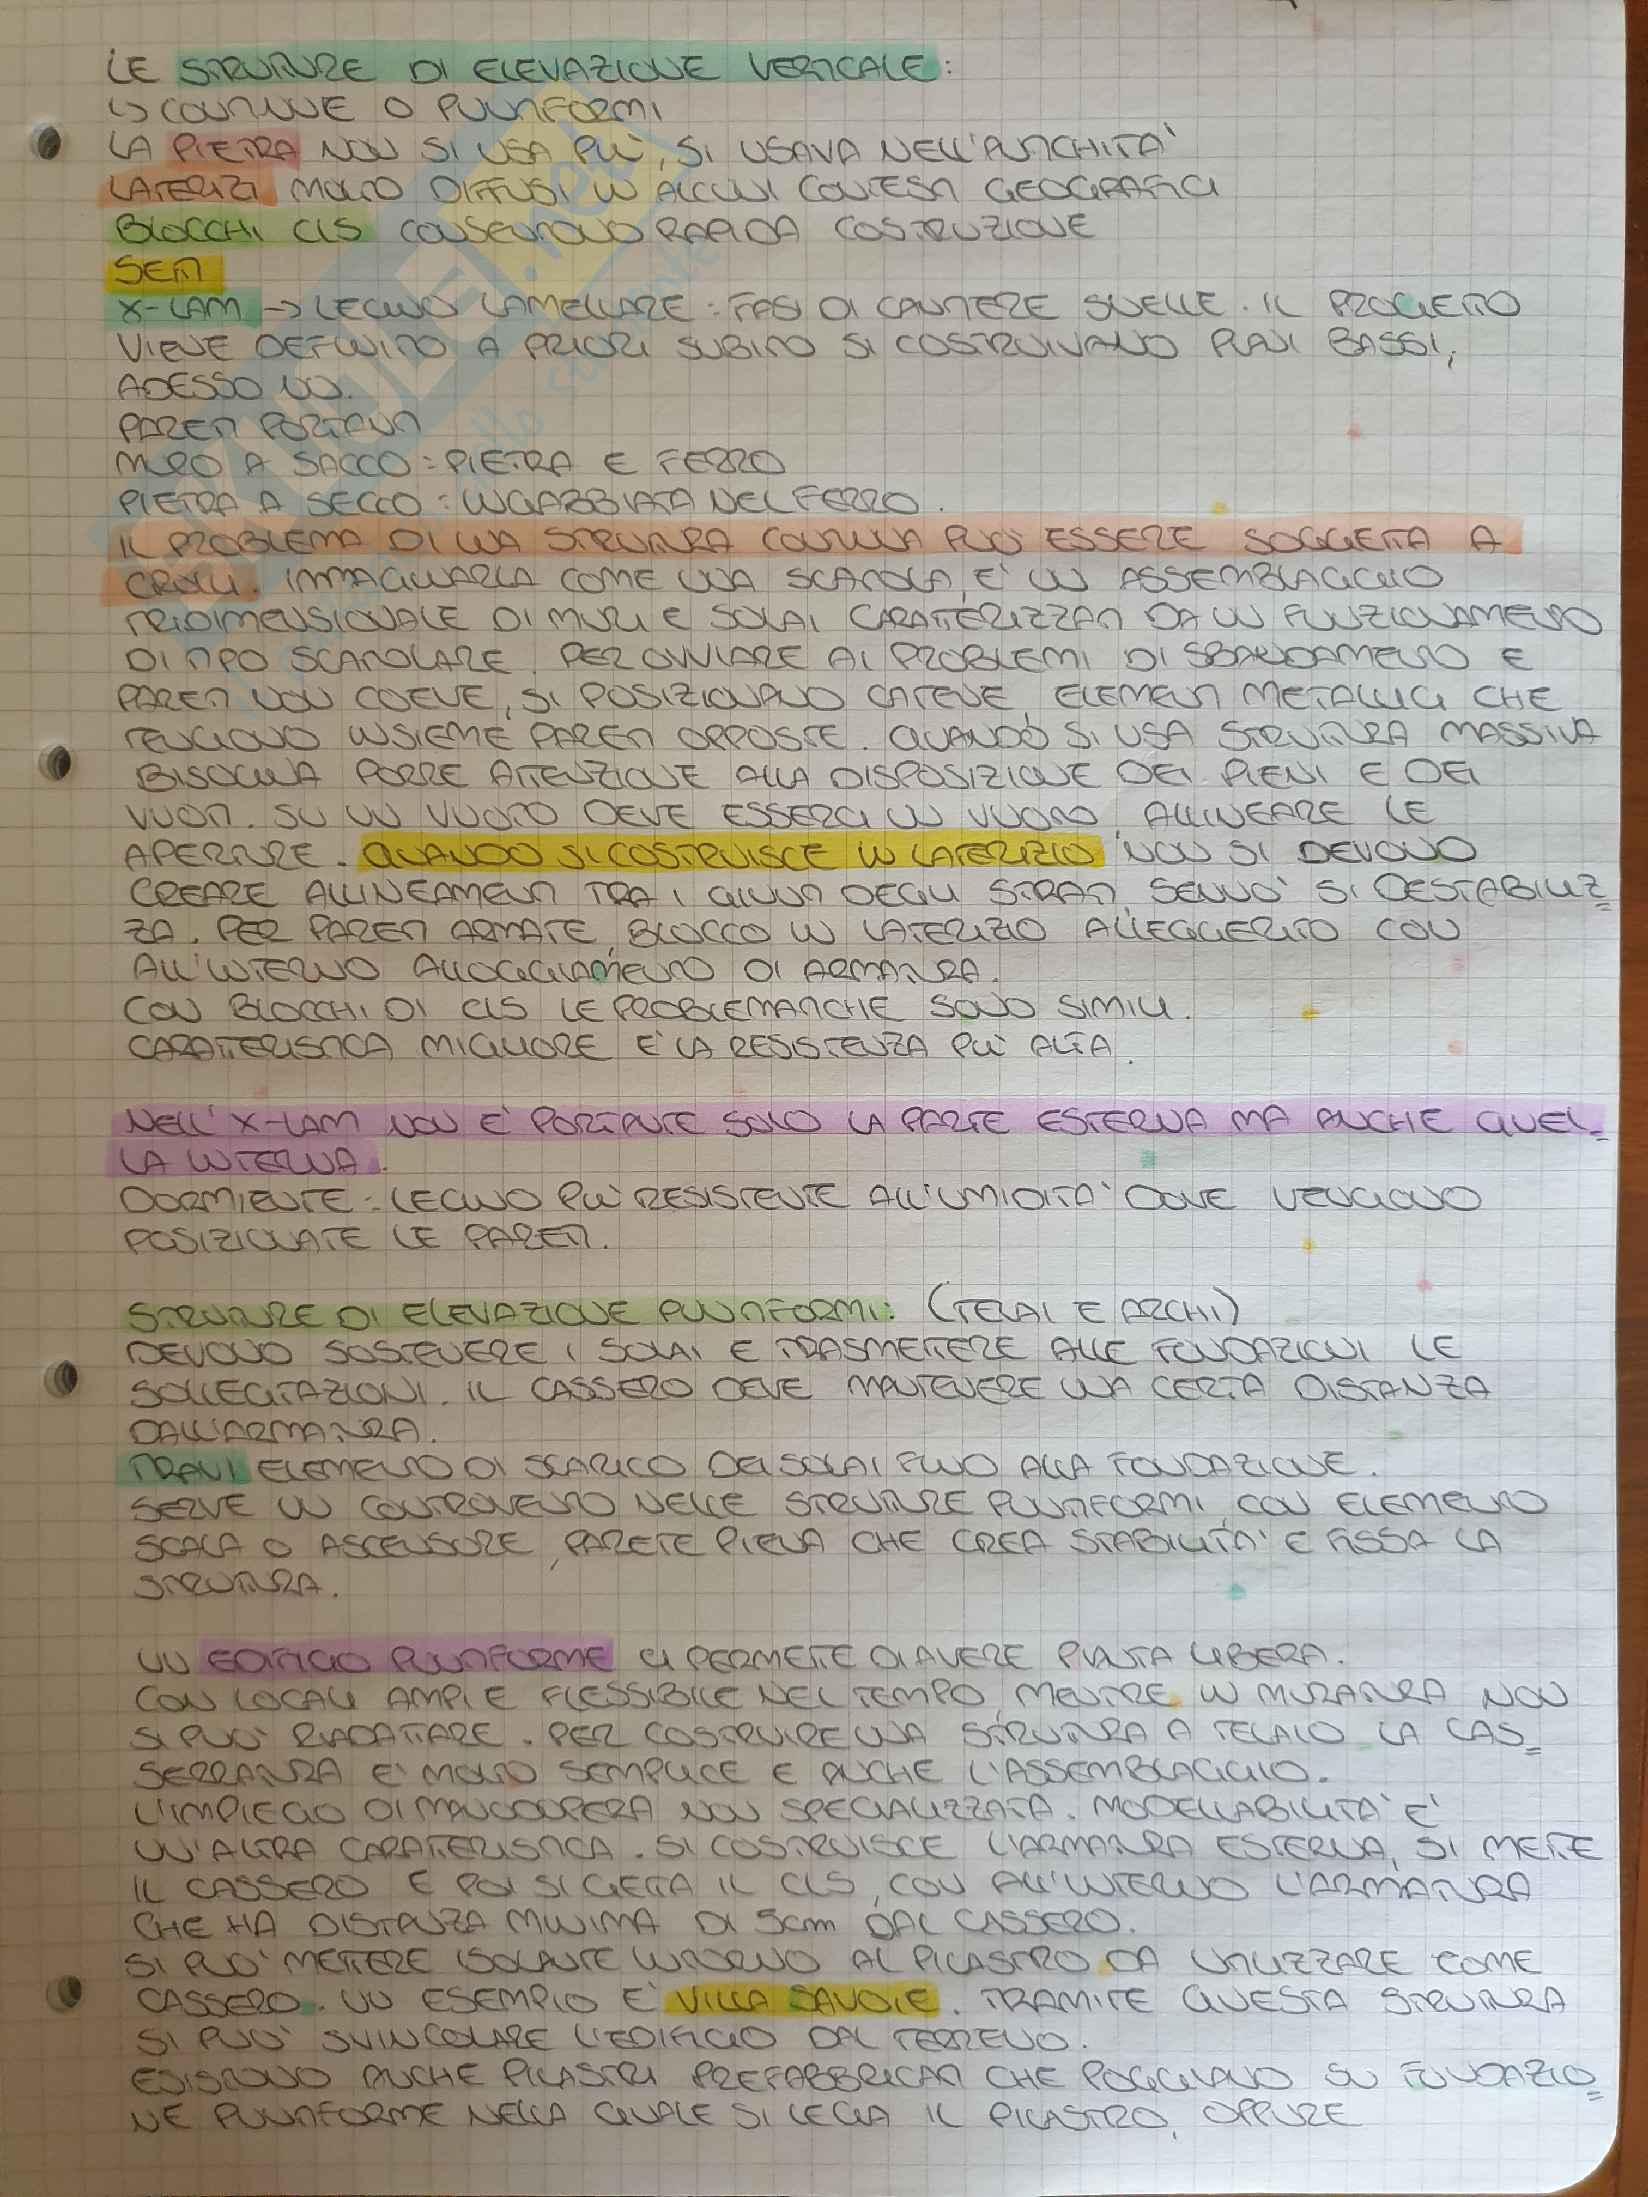 LE STRUTTURE DI ELEVAZIONE VERTICALE:
↳ CONTINUE O PUNTIFORMI
LA PIETRA NON SI USA PIÙ, SI USAVA NELL'ANTICHITÀ
LATERIZI MOLTO DIFFUSI IN ALCUNI CONTESTI GEOGRAFICI
BLOCCHI CLS CONSENTONO RAPIDA COSTRUZIONE
SETTI
X-LAM → LEGNO LAMELLARE: FASI DI CANTIERE SNELLE. IL PROGETTO
VIENE DEFINITO A PRIORI SUBITO SI COSTRUIVANO PIANI BASSI,
ADESSO NO.
PARETI PORTANTI
MURO A SACCO: PIETRA E FERRO
PIETRA A SECCO: INGABBIATA NEL FERRO.
IL PROBLEMA DI UNA STRUTTURA CONTINUA PUÒ ESSERE SOGGETTA A
CROLLI. IMMAGINARLA COME UNA SCATOLA, È UN ASSEMBLAGGIO
TRIDIMENSIONALE DI MURI E SOLAI CARATTERIZZATI DA UN FUNZIONAMENTO
DI TIPO SCATOLARE. PER OVVIARE AI PROBLEMI DI SBANDAMENTO E
PARETI NON COEVE, SI POSIZIONANO CATENE, ELEMENTI METALLICI CHE
TENGONO INSIEME PARETI OPPOSTE. QUANDO SI USA STRUTTURA MASSIVA
BISOGNA PORRE ATTENZIONE ALLA DISPOSIZIONE DEI PIENI E DEI
VUOTI. SU UN VUOTO DEVE ESSERCI UN VUOTO, ALLINEARE LE
APERTURE. QUANDO SI COSTRUISCE IN LATERIZIO NON SI DEVONO
CREARE ALLINEAMENTI TRA I GIUNTI DEGLI STRATI, SENNÒ SI DESTABILIZ=
ZA. PER PARETI ARMATE, BLOCCO IN LATERIZIO ALLEGGERITO CON
ALL'INTERNO ALLOGGIAMENTO DI ARMATURA.
CON BLOCCHI DI CLS LE PROBLEMATICHE SONO SIMILI.
CARATTERISTICA MIGLIORE È LA RESISTENZA PIÙ ALTA.
NELL'X-LAM NON È PORTANTE SOLO LA PARTE ESTERNA MA ANCHE QUEL=
LA INTERNA.
DORMIENTE: LEGNO PIÙ RESISTENTE ALL'UMIDITÀ DOVE VENGONO
POSIZIONATE LE PARETI.
STRUTTURE DI ELEVAZIONE PUNTIFORMI: (TELAI E ARCHI)
DEVONO SOSTENERE I SOLAI E TRASMETTERE ALLE FONDAZIONI LE
SOLLECITAZIONI. IL CASSERO DEVE MANTENERE UNA CERTA DISTANZA
DALL'ARMATURA.
TRAVI ELEMENTO DI SCARICO DEI SOLAI FINO ALLA FONDAZIONE.
SERVE UN CONTROVENTO NELLE STRUTTURE PUNTIFORMI, CON ELEMENTO
SCALA O ASCENSORE, PARETE PIENA CHE CREA STABILITÀ E FISSA LA
STRUTTURA.
UN EDIFICIO PUNTIFORME CI PERMETTE DI AVERE PIANTA LIBERA.
CON LOCALI AMPI E FLESSIBILE NEL TEMPO, MENTRE IN MURATURA NON
SI PUÒ RIADATTARE. PER COSTRUIRE UNA STRUTTURA A TELAIO LA CAS=
SERRATURA È MOLTO SEMPLICE E ANCHE L'ASSEMBLAGGIO.
L'IMPIEGO DI MANODOPERA NON SPECIALIZZATA. MODELLABILITÀ È
UN'ALTRA CARATTERISTICA. SI COSTRUISCE L'ARMATURA ESTERNA, SI METTE
IL CASSERO E POI SI GETTA IL CLS, CON ALL'INTERNO L'ARMATURA
CHE HA DISTANZA MINIMA DI 5cm DAL CASSERO.
SI PUÒ METTERE ISOLANTE INTORNO AL PILASTRO DA UTILIZZARE COME
CASSERO. UN ESEMPIO È VILLA SAVOIE. TRAMITE QUESTA STRUTTURA
SI PUÒ SVINCOLARE L'EDIFICIO DAL TERRENO.
ESISTONO ANCHE PILASTRI PREFABBRICATI CHE POGGIANO SU FONDAZIO=
NE PUNTIFORME NELLA QUALE SI LEGA IL PILASTRO, OPPURE